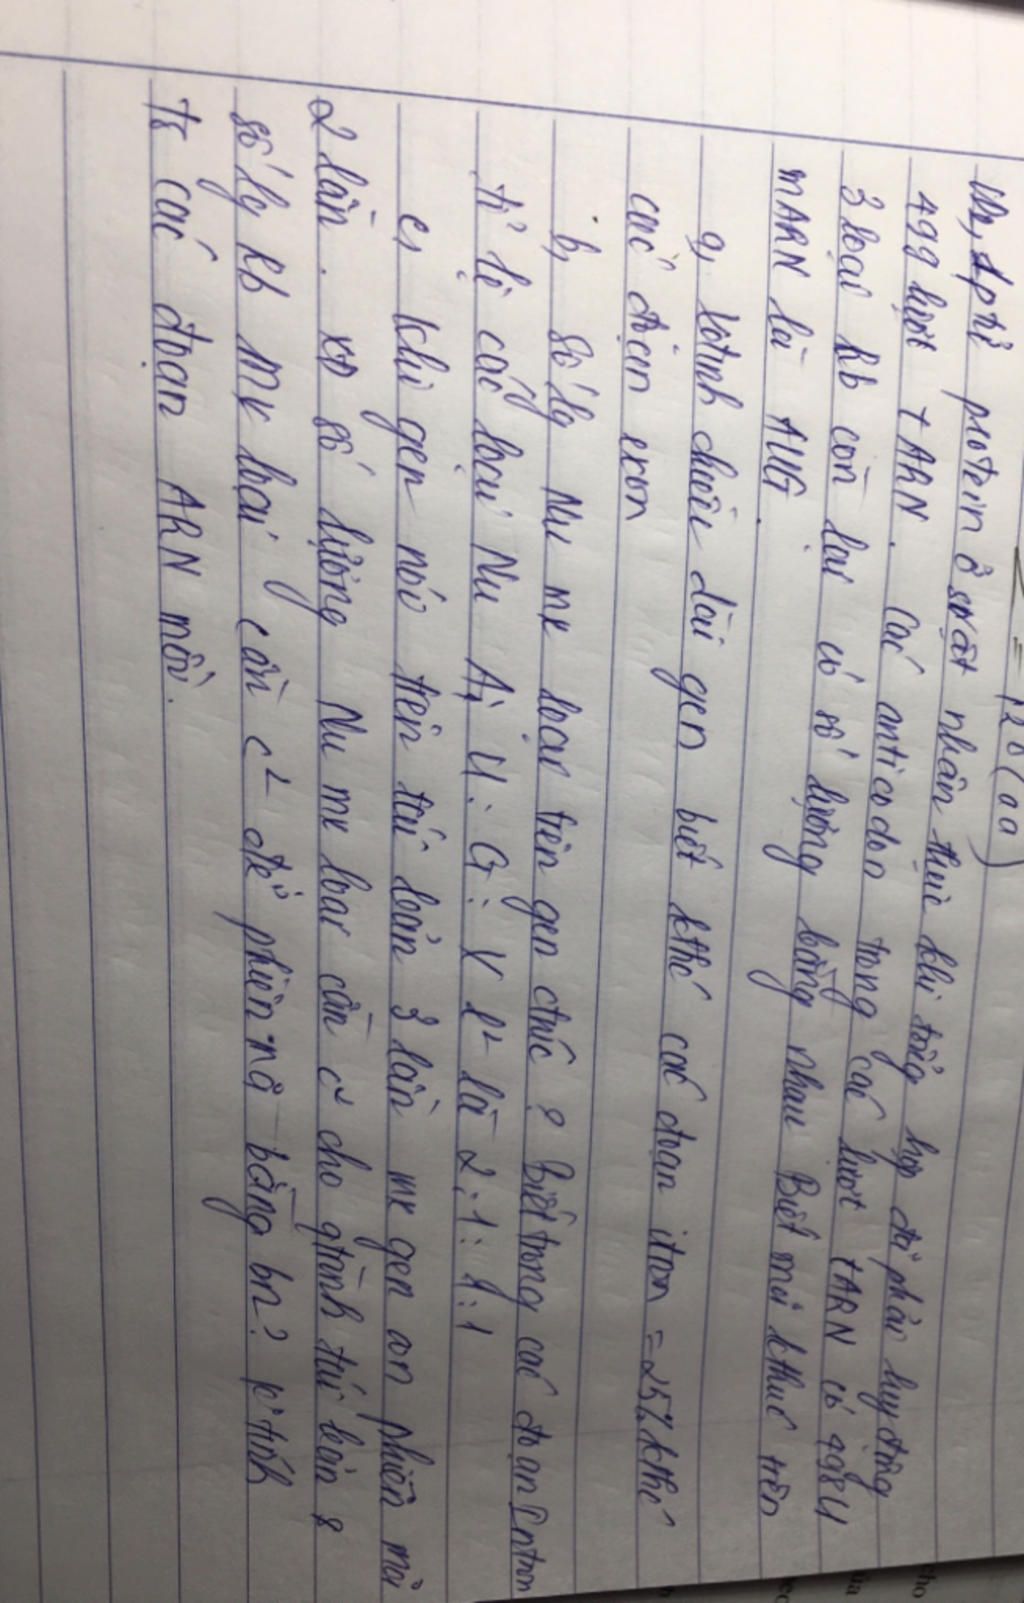 = 126 (aa)
1 ptử protein ở svật nhân thực khi tổng hợp đã phải huy động
499 lượt tARN. Các anticodon trong các lượt tARN có 498U
3 loại kb còn lại có số lượng bằng nhau Biết mã kthúc trên
mARN là AUG.
a, Xđịnh chiều dài gen biết kthc các đoạn itron = 25% kthc
các đoạn exon
b, Số lg Nu mx loại trên gen ctrúc? Biết trong các đoạn Intron
tỉ lệ các loại Nu A: U: G: X l² là 2:1:1:1
c, Khi gen nó trên tái bản 3 lần mx gen con phiên mã
2 lần. xđ số lượng Nu mx loại cần c² cho qtrình tái bản &
số lg kb mx loại cần c² để phiên mã bằng bn? p tính
từ các đoạn ARN mồi.
cho
ủa